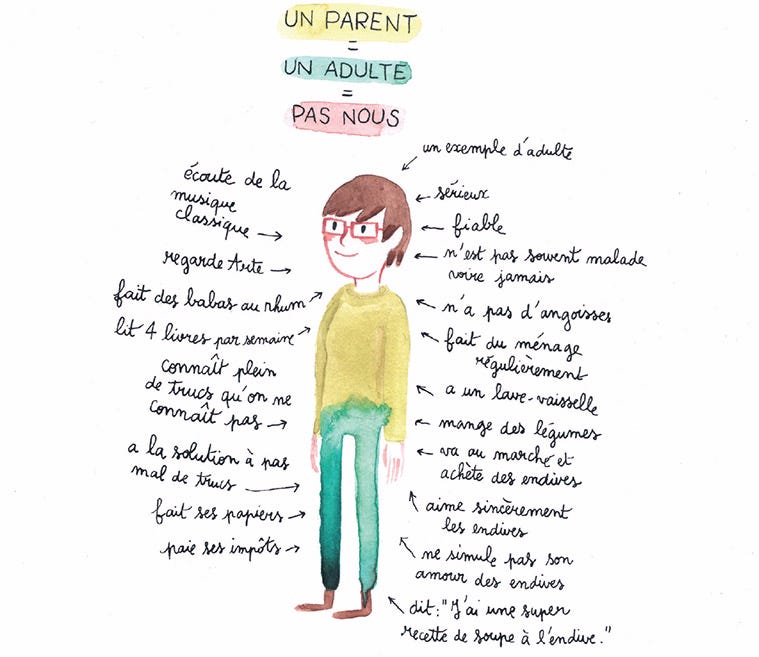 UN PARENT
=
UN ADULTE
=
PAS NOUS
écoute de la
musique
classique
regarde Arte
fait des babas au rhum
lit 4 livres par semaine
connaît plein
de trucs qu'on ne
connaît pas
a la solution à pas
mal de trucs
fait ses papiers
paie ses impôts
un exemple d'adulte
sérieux
fiable
n'est pas souvent malade
voire jamais
n'a pas d'angoisses
fait du ménage
régulièrement
a un lave-vaisselle
mange des légumes
va au marché et
achète des endives
aime sincèrement
les endives
ne simule pas son
amour des endives
dit : "J'ai une super
recette de soupe à l'endive."